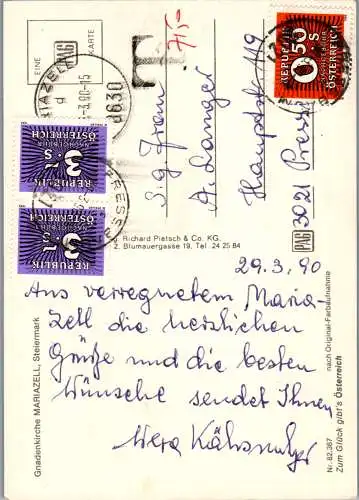 EINE
PAG
KARTE
MARIAZELL
-3.90-15
8630
T
7,50
REPUBLIK
S 0,50
NACHGEBÜHR
ÖSTERREICH
REPUBLIK
3 S
NACHGEBÜHR
ÖSTERREICH
REPUBLIK
3 S
NACHGEBÜHR
ÖSTERREICH
PRESSB
Sig. Frau
A. Langer
Hauptstr. 119
3021 Pressb
Richard Pietsch & Co. KG.
2. Blumauergasse 19, Tel. 24 25 84
PAG
29.3.90
Aus verregnetem Maria-
zell die herzlichen
Grüße und die besten
Wünsche sendet Ihnen
Wera
Gnadenkirche MARIAZELL, Steiermark
nach Original-Farbaufnahme
Nr. 82.367
Zum Glück gibt's Österreich